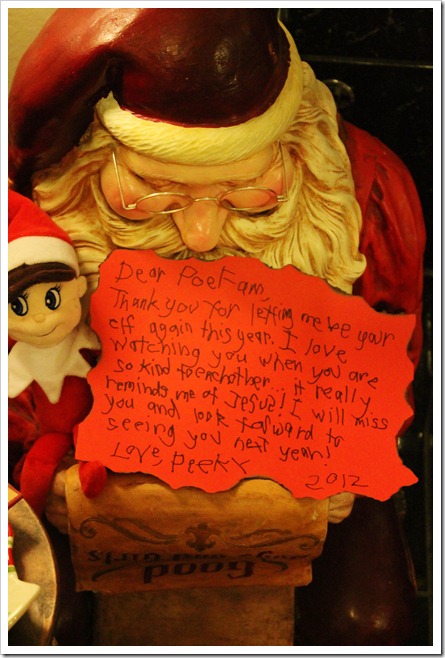 Dear PoeFam,
Thank you for letting me be your
elf again this year. I love
watching you when you are
so kind to eachother... it really
reminds me of Jesus! I will miss
you and look foward to
seeing you next year!
Love, Peeky
2012
Good